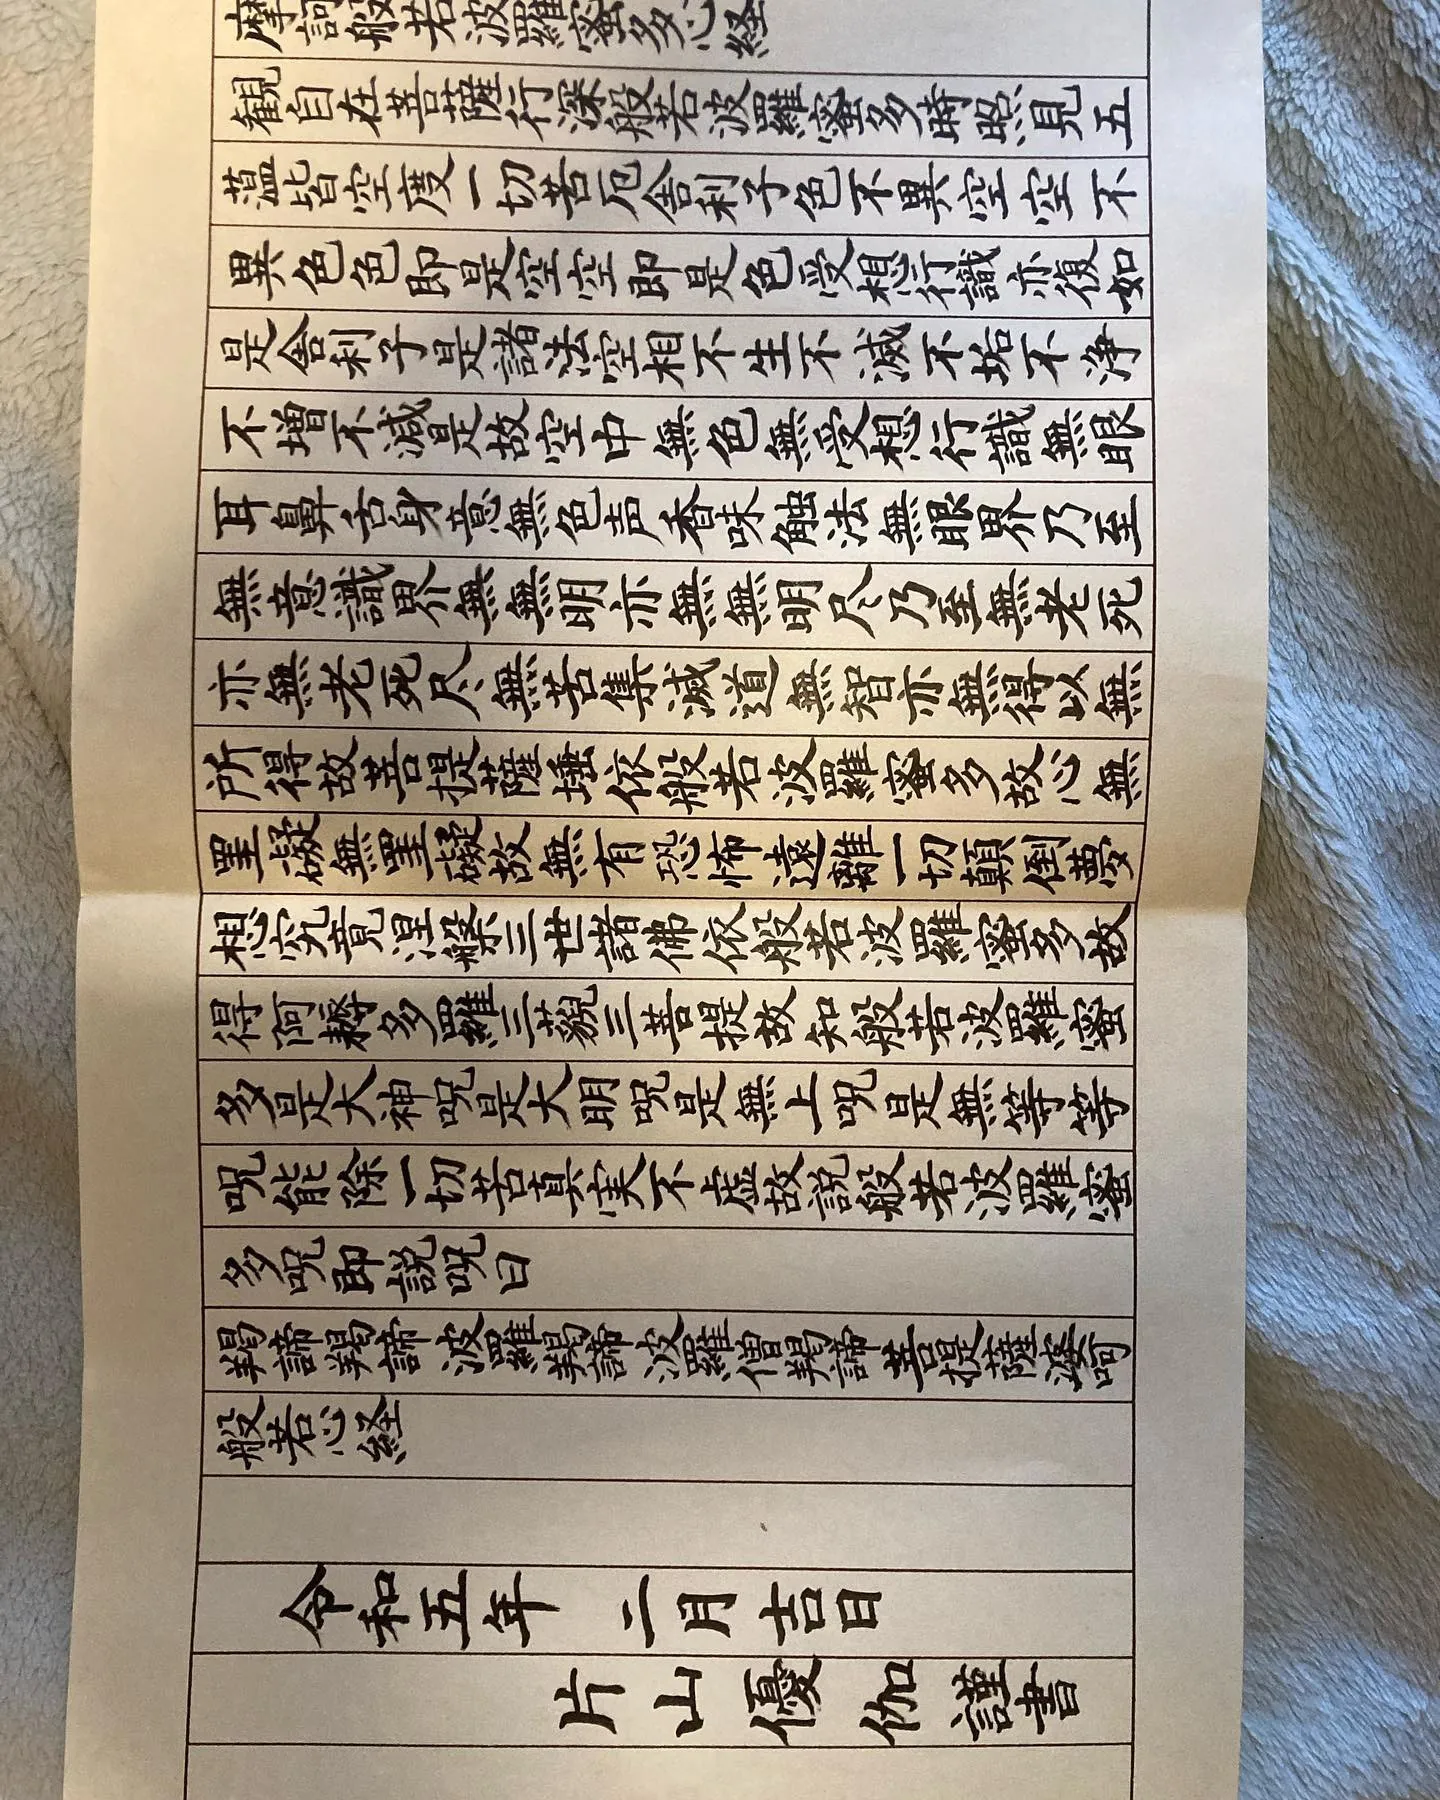 摩訶般若波羅蜜多心経
観自在菩薩行深般若波羅蜜多時照見五
蘊皆空度一切苦厄舎利子色不異空空不
異色色即是空空即是色受想行識亦復如
是舎利子是諸法空相不生不滅不垢不浄
不増不減是故空中無色無受想行識無眼
耳鼻舌身意無色声香味触法無眼界乃至
無意識界無無明亦無無明尽乃至無老死
亦無老死尽無苦集滅道無智亦無得以無
所得故菩提薩埵依般若波羅蜜多故心無
罣礙無罣礙故無有恐怖遠離一切顛倒夢
想究竟涅槃三世諸佛依般若波羅蜜多故
得阿耨多羅三藐三菩提故知般若波羅蜜
多是大神呪是大明呪是無上呪是無等等
呪能除一切苦真実不虚故説般若波羅蜜
多呪即説呪曰
羯諦羯諦波羅羯諦波羅僧羯諦菩提薩婆訶
般若心経
令和五年 二月吉日
片山優伽謹書